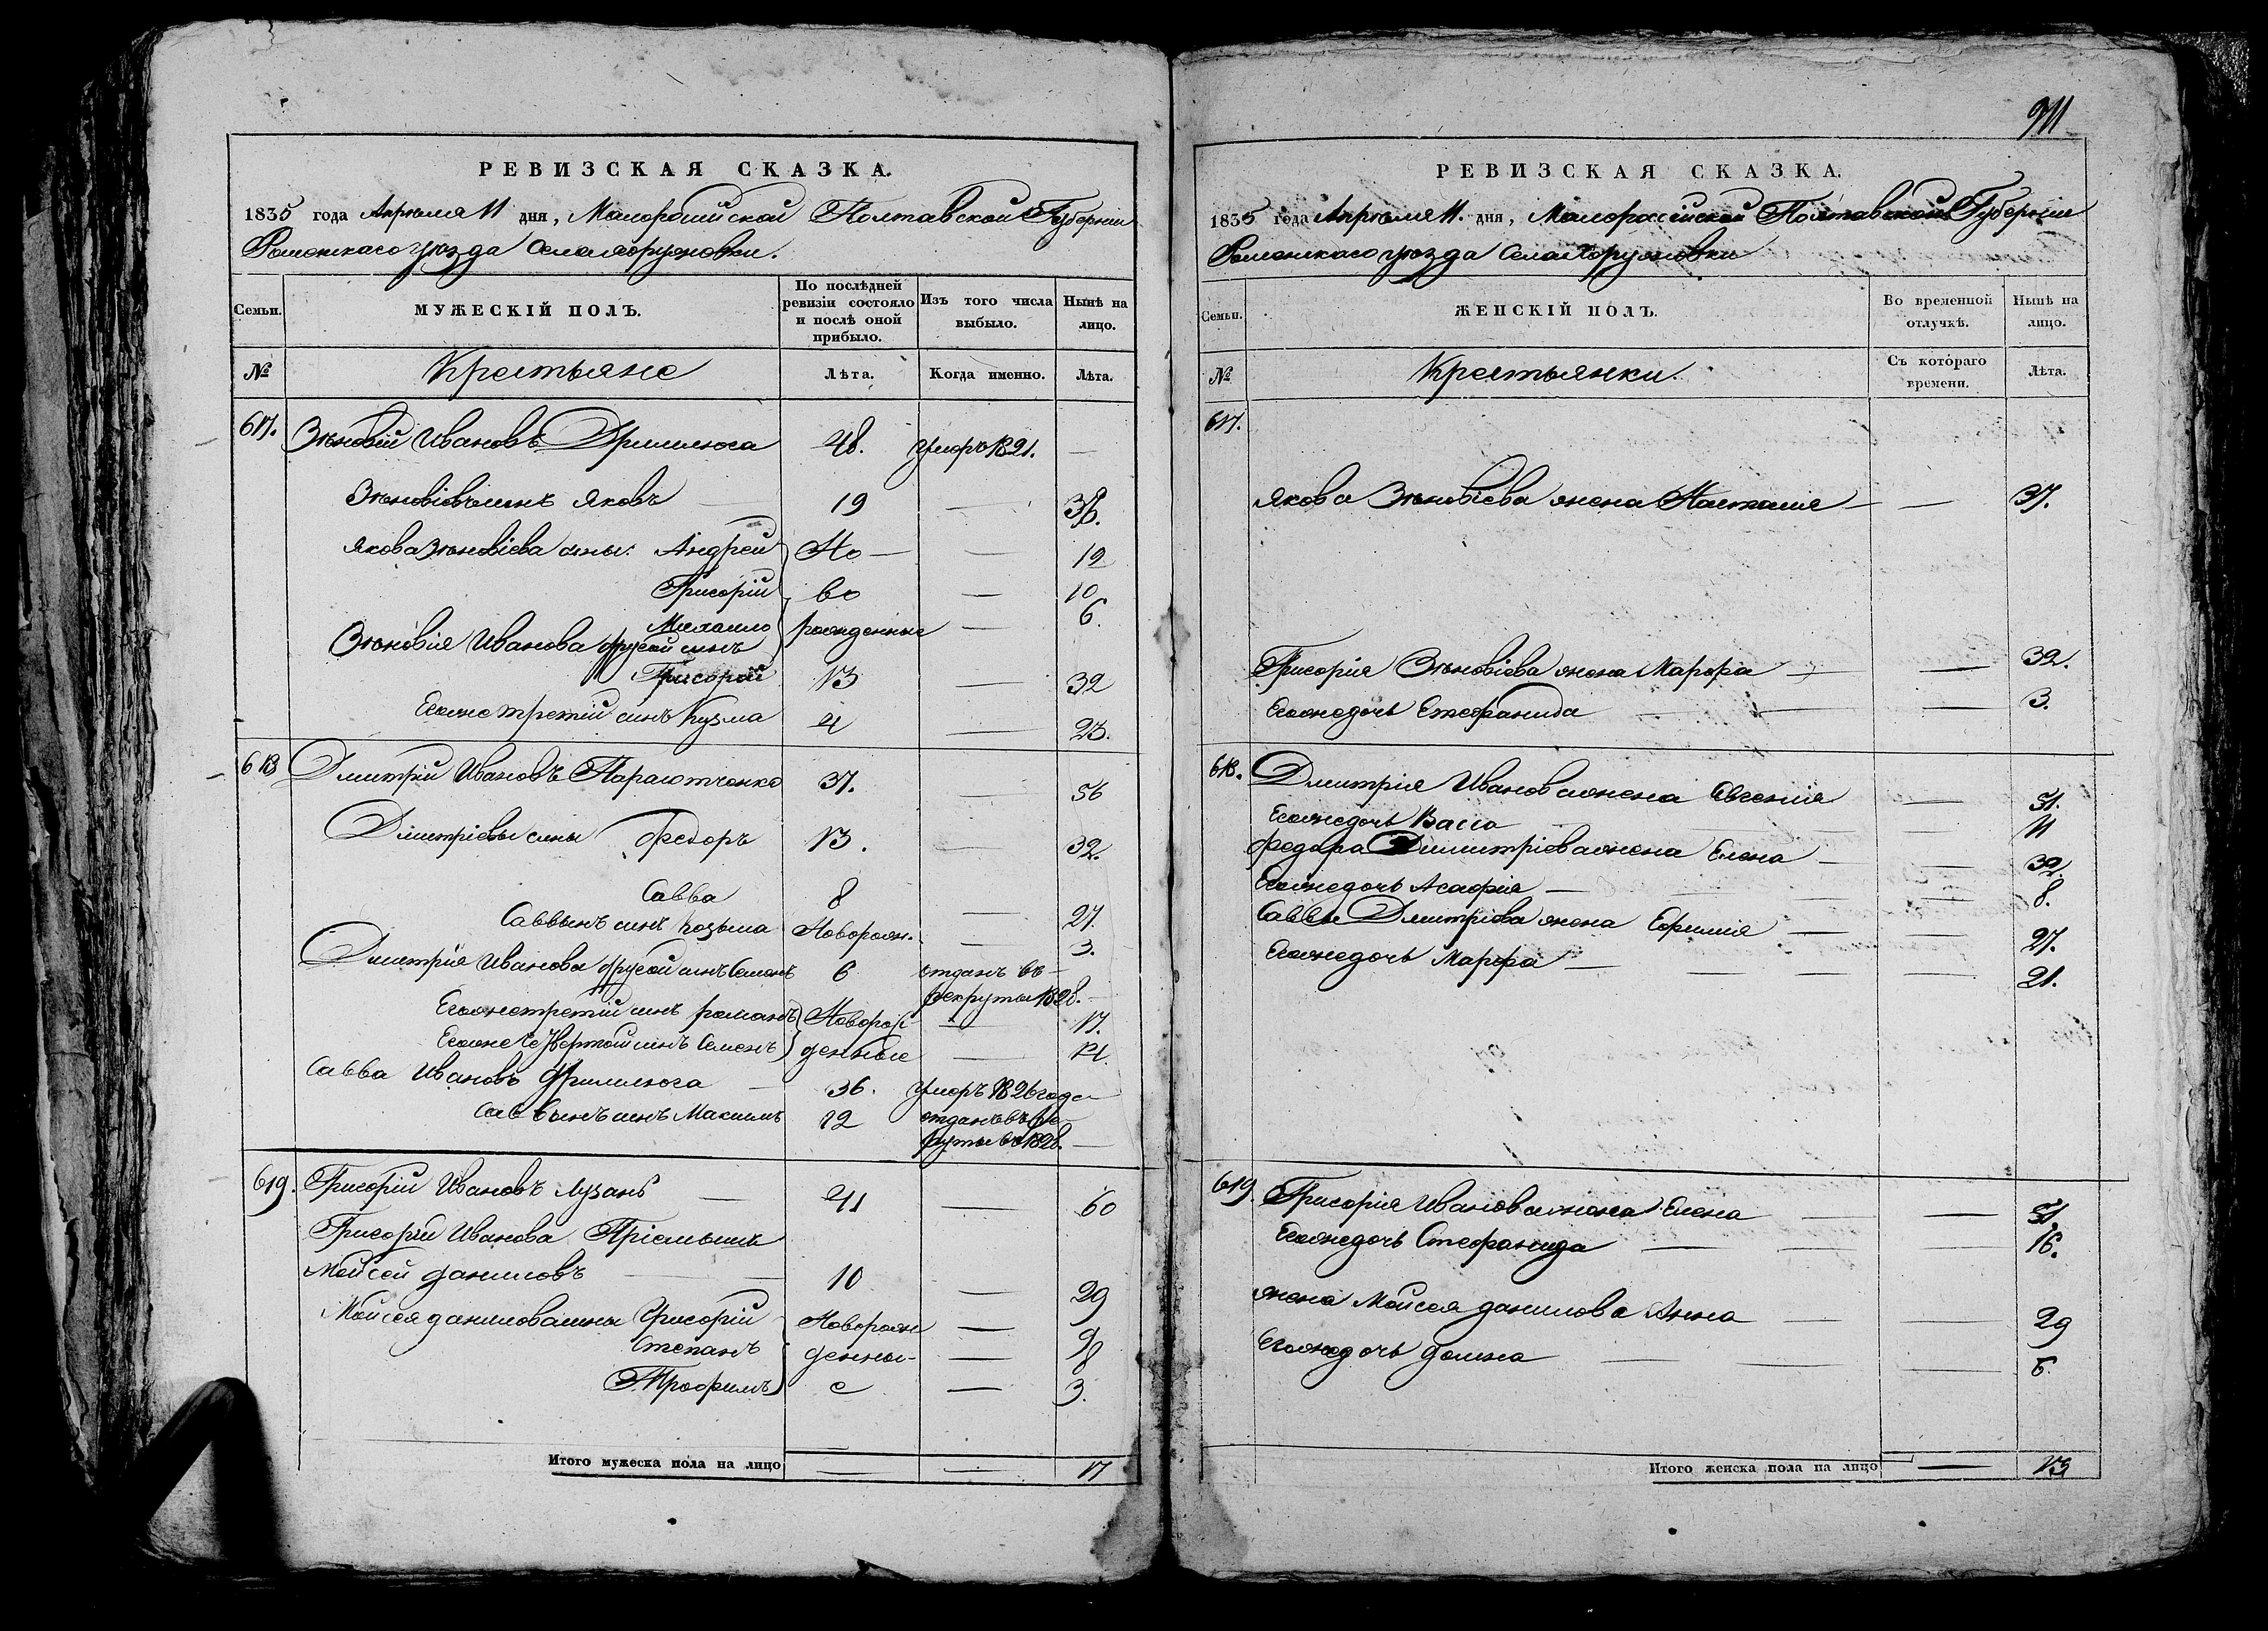 911
РЕВИЗСКАЯ СКАЗКА.
1835 года Апреля 11 дня, Малороссийской Полтавской Губернии
Роменскаго уезда Села Хоружовки.
Семьи.
МУЖЕСКІЙ ПОЛЪ.
По послѣдней ревизіи состояло и послѣ оной прибыло.
Изъ того числа выбыло.
Нынѣ на лицо.
№
Крестьяне
Лѣта.
Когда именно.
Лѣта.
617. Зѣновій Ивановъ 48. умеръ 1821. —
Зѣновіевъ сынъ Яковъ 19 — 38.
Якова Зѣновіева сины: Андрей Но — — 12
Григорій во — 10
Михаило рожденные — 6.
Зѣновія Иванова другой синъ
Григорій 13 — 32
Егоже третій синъ Кузма 4 — 23.
618 Дмитрій Ивановъ Парастченко 37. — 56
Дмитріевы сины Федоръ 13. — 32.
Савва 8 — 27.
Саввынъ синъ Козьма Новорож. — 3.
Дмитрія Иванова другой синъ Семенъ 6 отданъ въ
рекруты 1828. —
Егоже третій синъ Романъ Новорож — 17.
Егоже Четвертой синъ Семенъ денные — 14.
Савва Ивановъ 36. умеръ 1826 года
Саввынъ синъ Максимъ 12 отданъ въ ре-
круты въ 1828. —
619. Григорій Ивановъ Лузанъ — 41 — 60
Григорій Иванова Пріемышъ
Мойсей Даниловъ — 10 — 29
Мойсея Данилова сины Григорій Новорож — 9
Степанъ денны- — 8
Трофимъ е — 3.
Итого мужеска пола на лицо — — 17
РЕВИЗСКАЯ СКАЗКА.
1835 года Апреля 11. дня, Малороссійской Полтавской Губерніи
Роменскаго уезда Села Хоружовки
Семьи.
ЖЕНСКІЙ ПОЛЪ.
Во временной отлучкѣ.
Нынѣ на лицо.
№
Крестьянки.
Съ котораго времени.
Лѣта.
617.
Якова Зѣновіева жена Настасія — — 37.
Григорія Зѣновіева жена Марфа — — 32.
Егоже дочь Стефанида — — 3.
618. Дмитрія Иванова жена Евгенія — 51.
Егоже дочь Васса — 11
Федора Димитріева жена Елена — — 32.
Егоже дочь Агафія — — 8.
Саввы Дмитріева жена Ефимія — — 27.
Егоже дочь Марфа — — 21.
619. Григорія Иванова жена Елена — — 51.
Егоже дочь Стефанида — — 16.
жена Мойсея Данилова Анна — — 29
Егоже дочь Домна — — 6.
Итого женска пола на лицо — 13